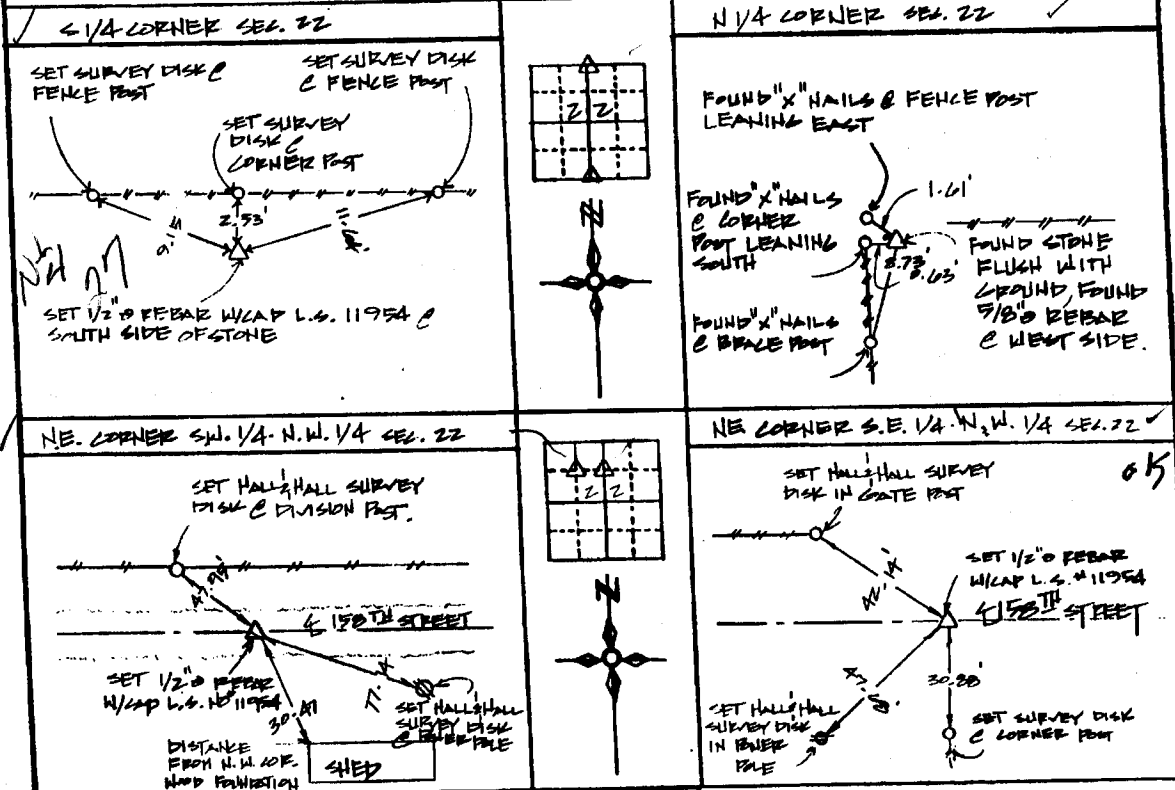 S 1/4 CORNER SEC. 22
SET SURVEY DISK @
FENCE POST
SET SURVEY DISK
@ FENCE POST
SET SURVEY
DISK @
CORNER POST
9.15
2.53'
N 1/4
27
SET 1/2"ø REBAR W/CAP L.S. 11954 @
SOUTH SIDE OF STONE
22
N
N 1/4 CORNER SEC. 22
FOUND "X" NAILS @ FENCE POST
LEANING EAST
1.61'
FOUND "X" NAILS
@ CORNER
POST LEANING
SOUTH
8.73'
0.63'
FOUND STONE
FLUSH WITH
GROUND, FOUND
5/8"ø REBAR
@ WEST SIDE.
FOUND "X" NAILS
@ BRACE POST
NE. CORNER S.W. 1/4 - N.W. 1/4 SEC. 22
SET HALL & HALL SURVEY
DISK @ DIVISION POST.
47.95'
℄ 158TH STREET
SET 1/2"ø REBAR
W/CAP L.S. Nº 11954
30.41
SET HALL & HALL
SURVEY DISK
@ POWER POLE
DISTANCE
FROM N.W. COR.
WOOD FOUNDATION
SHED
22
N
NE CORNER S.E. 1/4 - N.W. 1/4 SEC. 22
OK
SET HALL & HALL SURVEY
DISK IN GATE POST
42.14'
SET 1/2"ø REBAR
W/CAP L.S. # 11954
℄ 158TH STREET
30.88'
SET HALL & HALL
SURVEY DISK
IN POWER
POLE
SET SURVEY DISK
@ CORNER POST